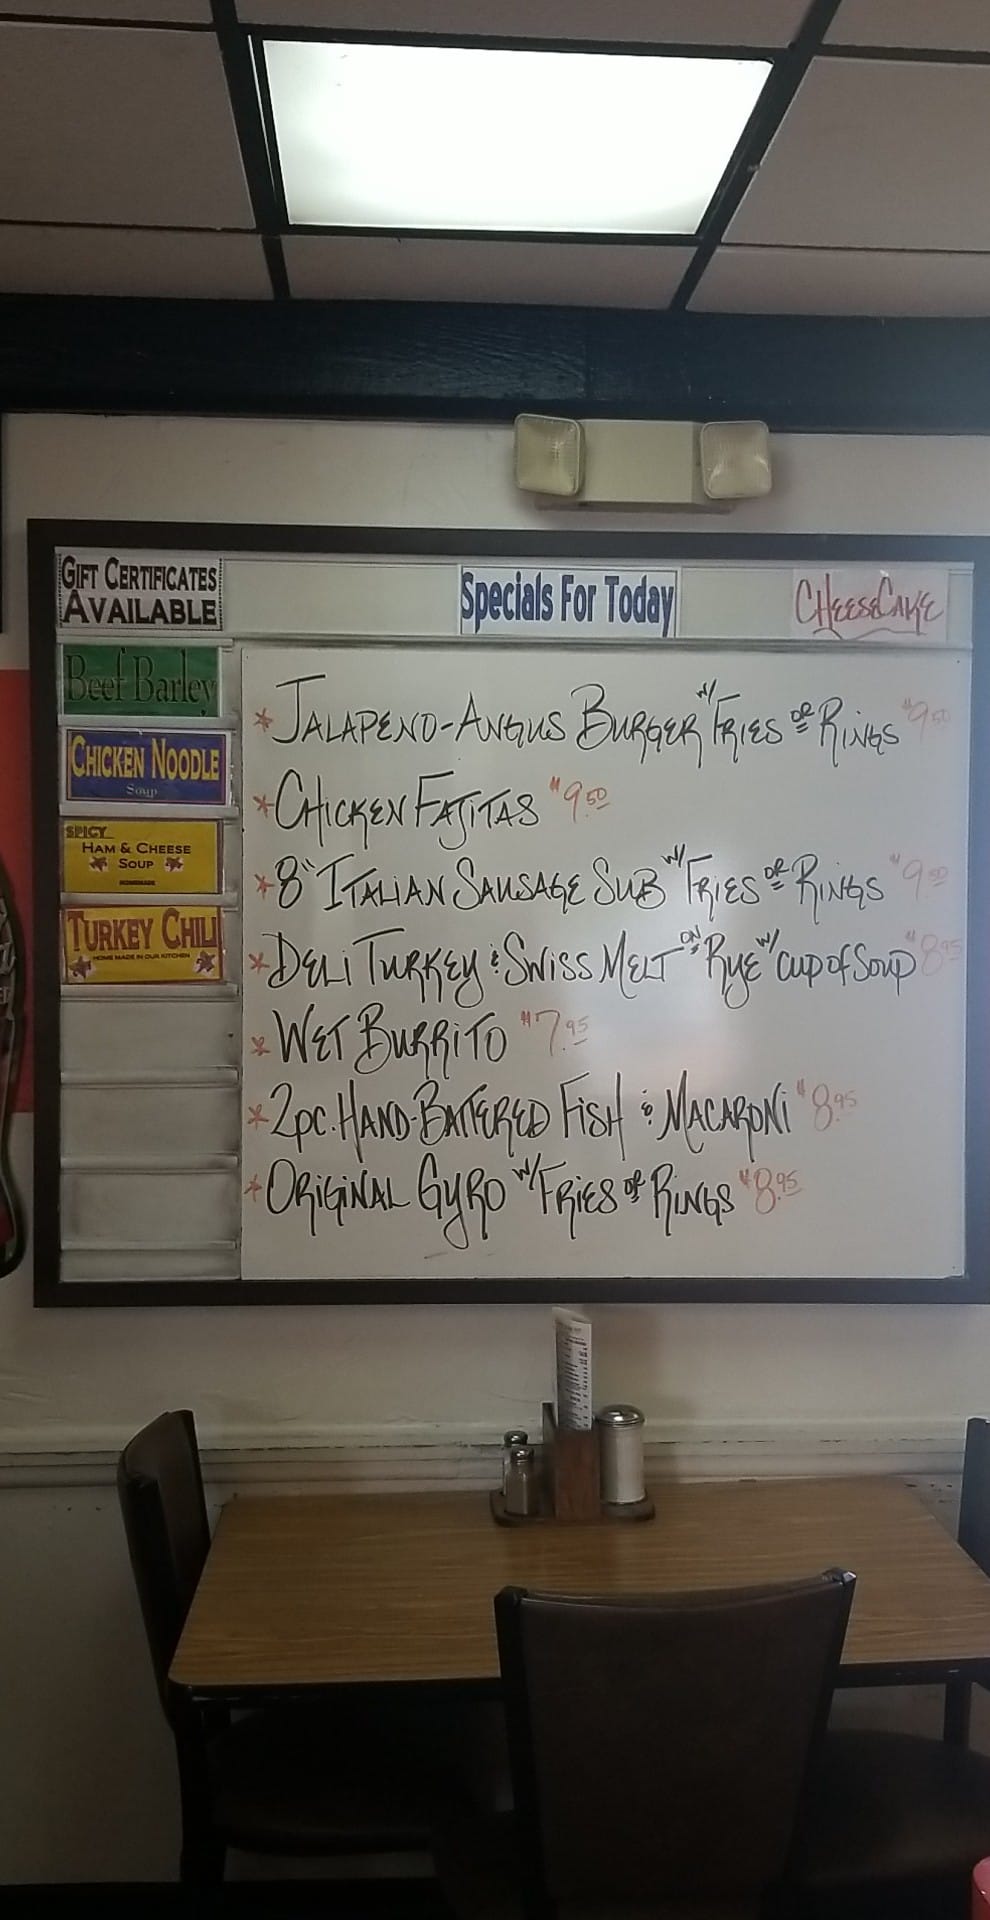 GIFT CERTIFICATES
AVAILABLE
Specials For Today
CHEESECAKE
Beef Barley
CHICKEN NOODLE
Soup
SPICY
HAM & CHEESE
SOUP
HOMEMADE
TURKEY CHILI
HOME MADE IN OUR KITCHEN
* JALAPENO-ANGUS BURGER W/ FRIES OR RINGS $9.50
* CHICKEN FAJITAS $9.50
* 8" ITALIAN SAUSAGE SUB W/ FRIES OR RINGS $9.50
* DELI TURKEY & SWISS MELT ON RYE W/ CUP OF SOUP $8.95
* WET BURRITO $7.95
* 2PC. HAND-BATTERED FISH & MACARONI $8.95
* ORIGINAL GYRO W/ FRIES OR RINGS $8.95